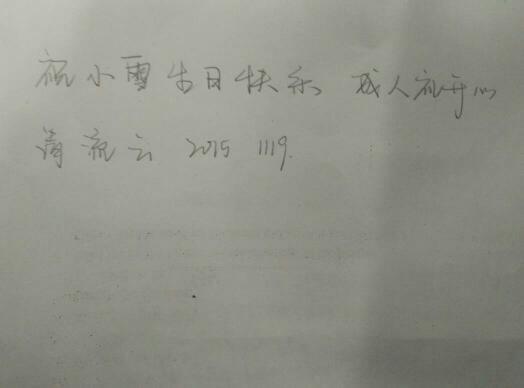 祝小雪生日快乐 成人礼开心
简流云 2015 1119.